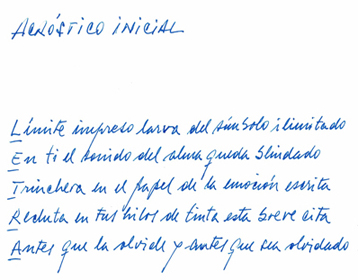 ACRÓSTICO INICIAL
Límite impreso larva del símbolo ilimitado
En ti el sonido del alma queda blindado
Trinchera en el papel de la emoción escrita
Recluta en tus hilos de tinta esta breve cita
Antes que la olvide y antes que sea olvidado